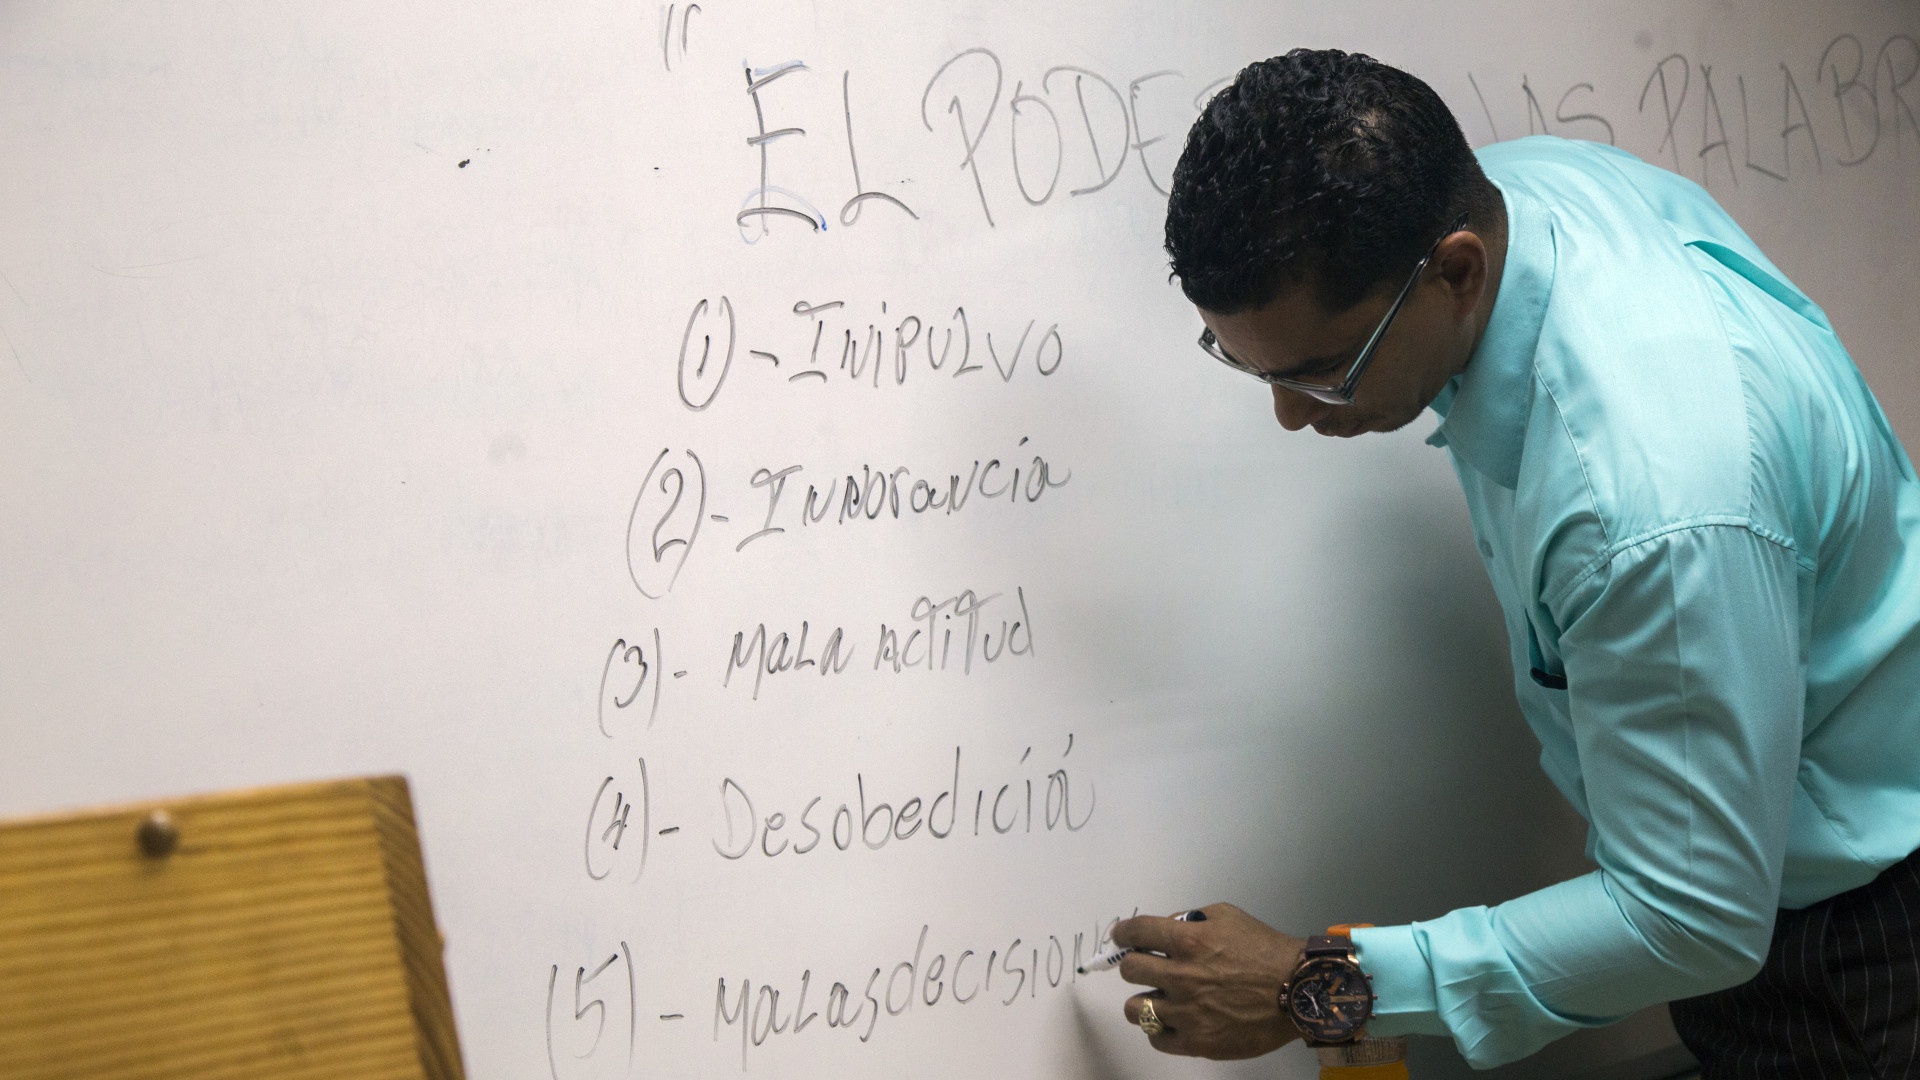 " EL PODE LAS PALABR
(1) - INIPULVO
(2) - INNORANCÍA
(3) - MALA ACTITUD
(4) - Desobedicíá
(5) - MALAS decisiones